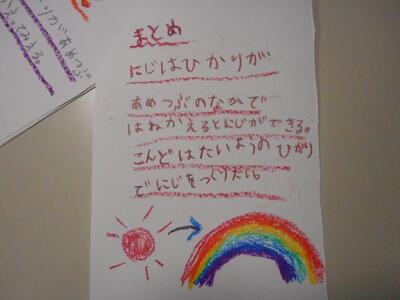 まとめ
にじはひかりが
あめつぶのなかで
はねかえるとにじができる。
こんどはたいようのひかり
でにじをつくりたい。
りがあめつぶ
てみえる。